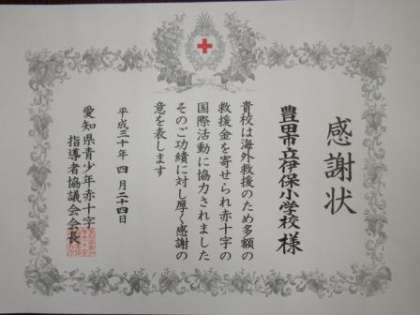 感謝状
豊田市立伊保小学校 様
貴校は海外救援のため多額の
救援金を寄せられ赤十字の
国際活動に協力されました
そのご功績に対し厚く感謝の
意を表します
平成三十年 四月二十四日
愛知県青少年赤十字
指導者協議会会長